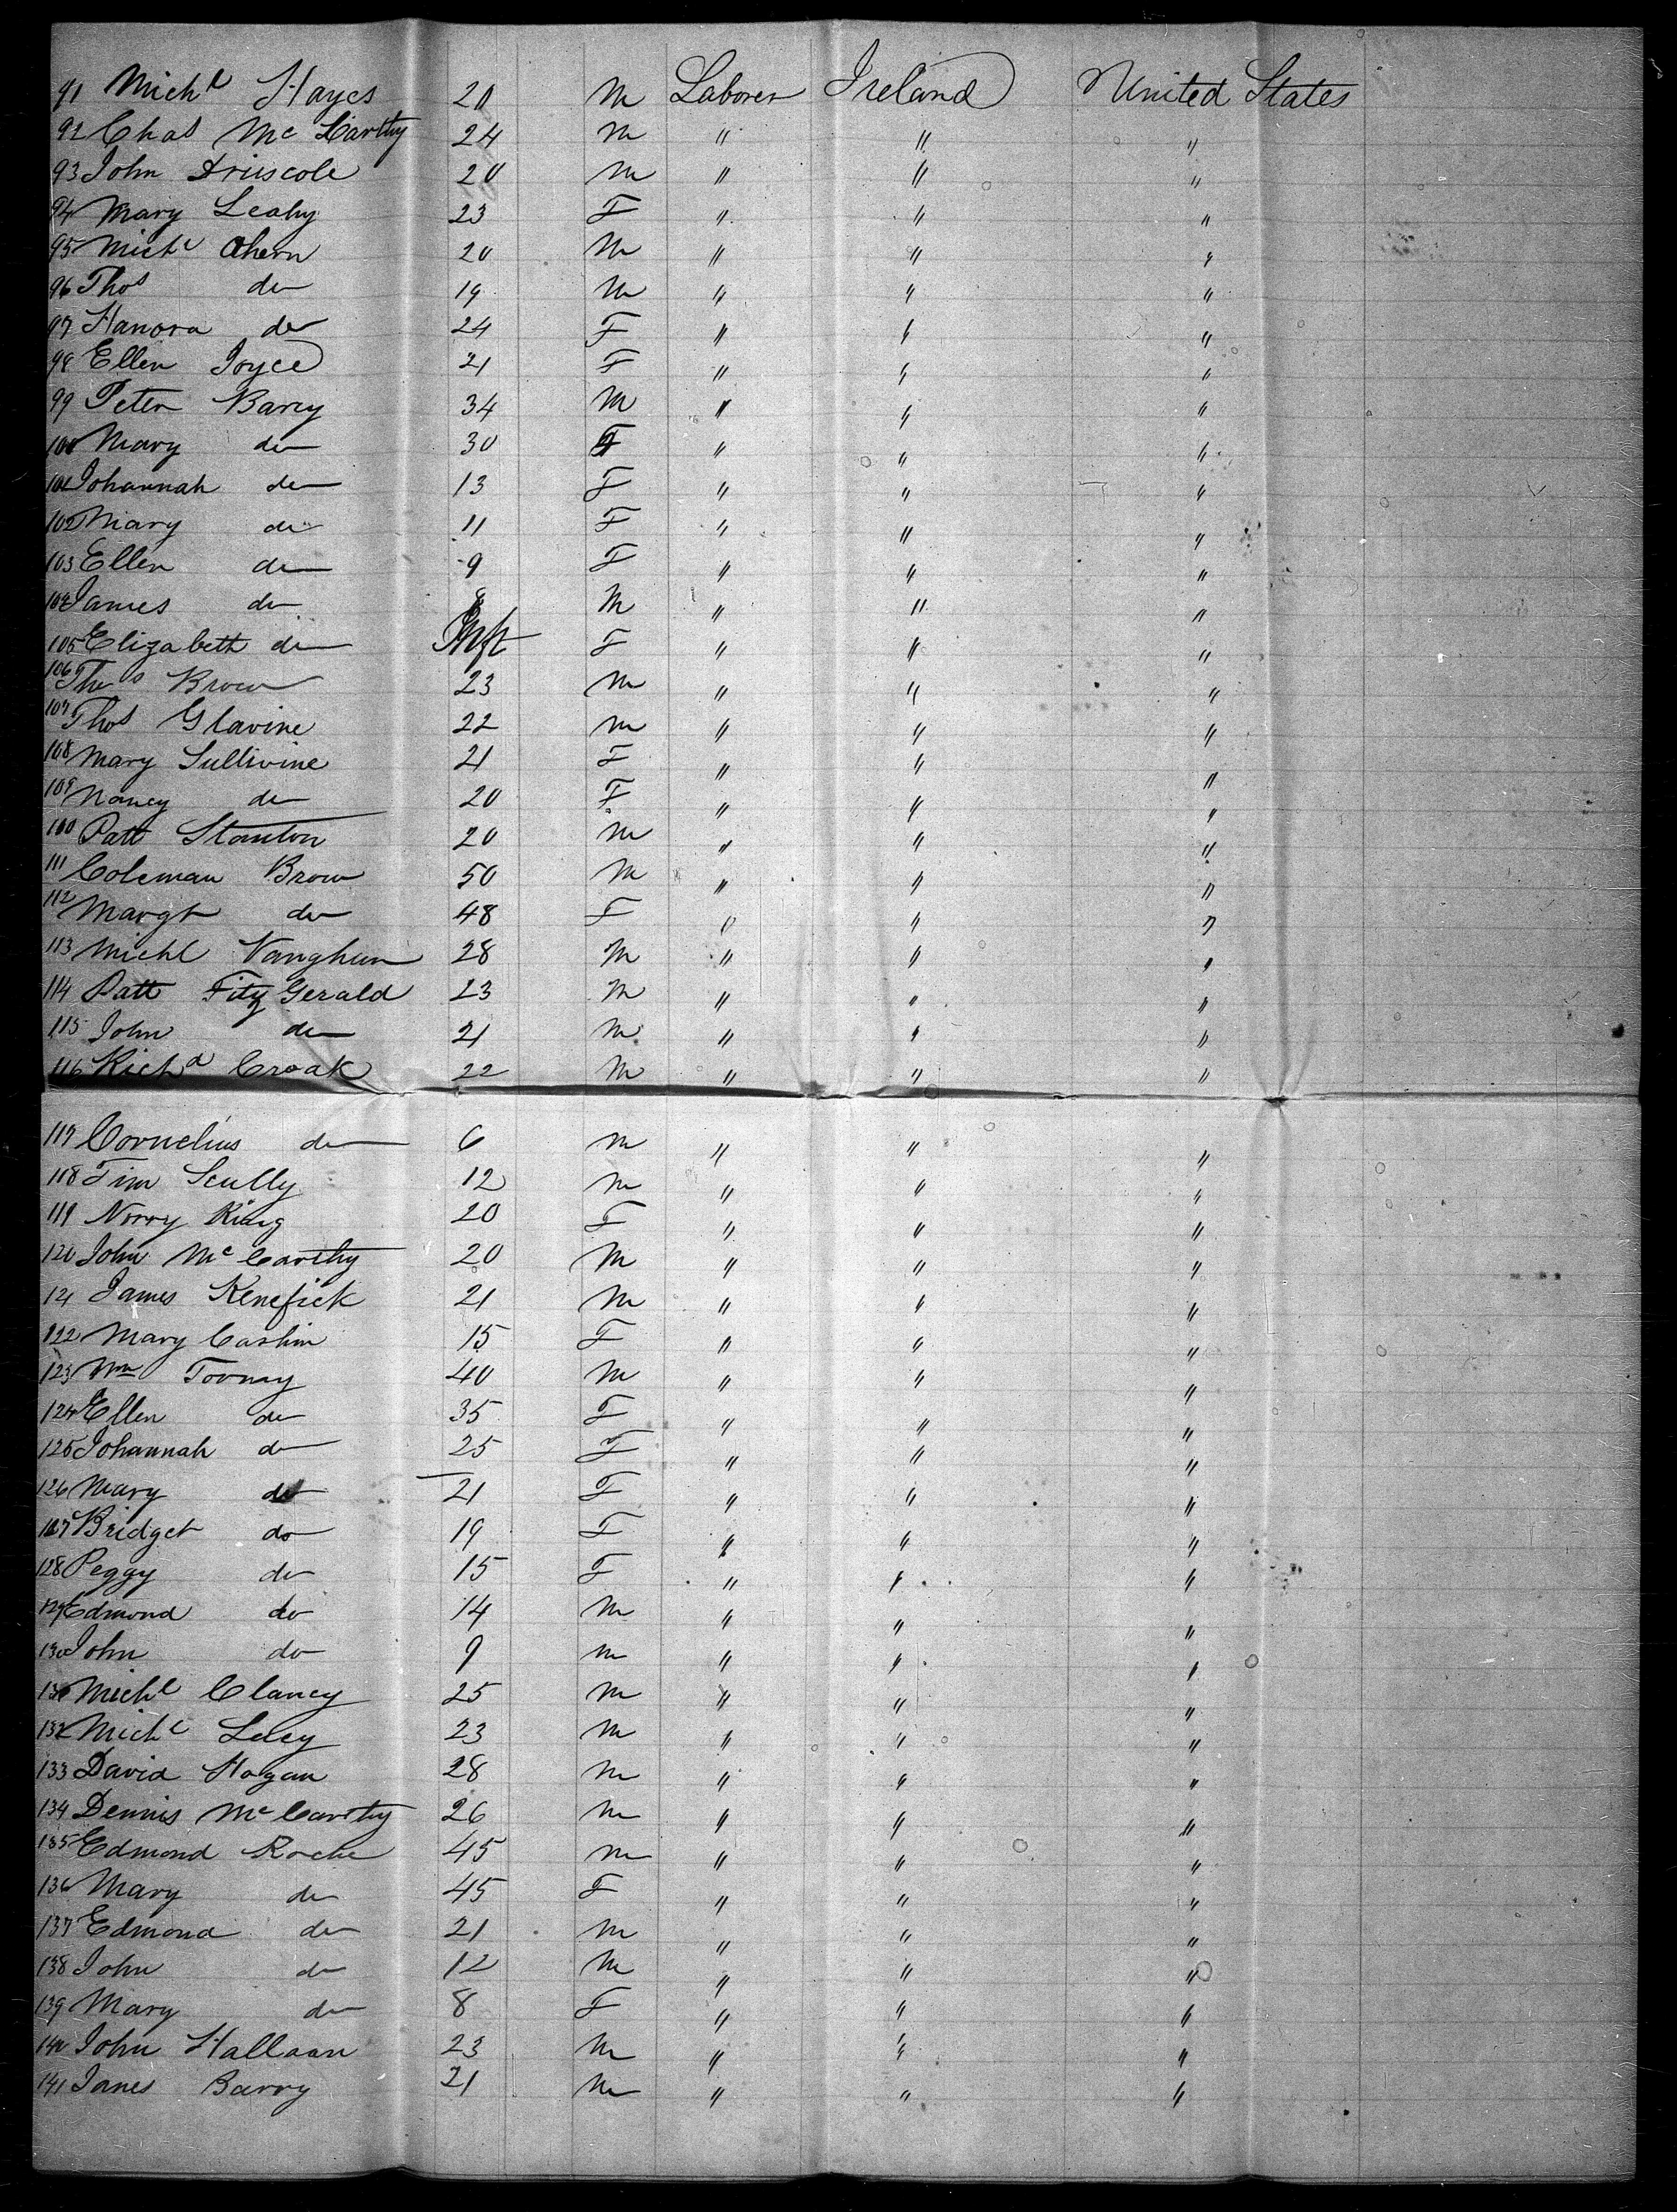 91 Michl Hayes 20 M Laborer Ireland United States
92 Chas Mc Carthy 24 M " " "
93 John Driscole 20 M " " "
94 Mary Leahy 23 F " " "
95 Michl Ahern 20 M " " "
96 Thos do 19 M " " "
97 Hanora do 24 F " " "
98 Ellen Joyce 21 F " " "
99 Peter Barry 34 M " " "
100 Mary do 30 F " " "
101 Johannah do 13 F " " "
102 Mary do 11 F " " "
103 Ellen do 9 F " " "
104 James do 8 M " " "
105 Elizabeth do Inft F " " "
106 Thos Brow 23 M " " "
107 Thos Glavine 22 M " " "
108 Mary Sullivine 21 F " " "
109 Nancy do 20 F " " "
110 Patt Stanton 20 M " " "
111 Coleman Brow 50 M " " "
112 Margt do 48 F " " "
113 Michl Vaughun 28 M " " "
114 Patt Fitz Gerald 23 M " " "
115 John do 21 M " " "
116 Richd Croak 22 M " " "
117 Cornelius do 6 M " " "
118 Tim Scully 12 M " " "
119 Norry Ring 20 F " " "
120 John Mc Carthy 20 M " " "
121 James Kenefick 21 M " " "
122 Mary Cashin 15 F " " "
123 Wm Toovnay 40 M " " "
124 Ellen do 35 F " " "
125 Johannah do 25 F " " "
126 Mary do 21 F " " "
127 Bridget do 19 F " " "
128 Peggy do 15 F " " "
129 Edmond do 14 M " " "
130 John do 9 M " " "
131 Michl Clancy 25 M " " "
132 Michl 23 M " " "
133 David Hogan 28 M " " "
134 Dennis Mc Carthy 26 M " " "
135 Edmond Roche 45 M " " "
136 Mary do 45 F " " "
137 Edmond do 21 M " " "
138 John do 12 M " " "
139 Mary do 8 F " " "
140 John Hallaan 23 M " " "
141 James Barry 21 M " " "